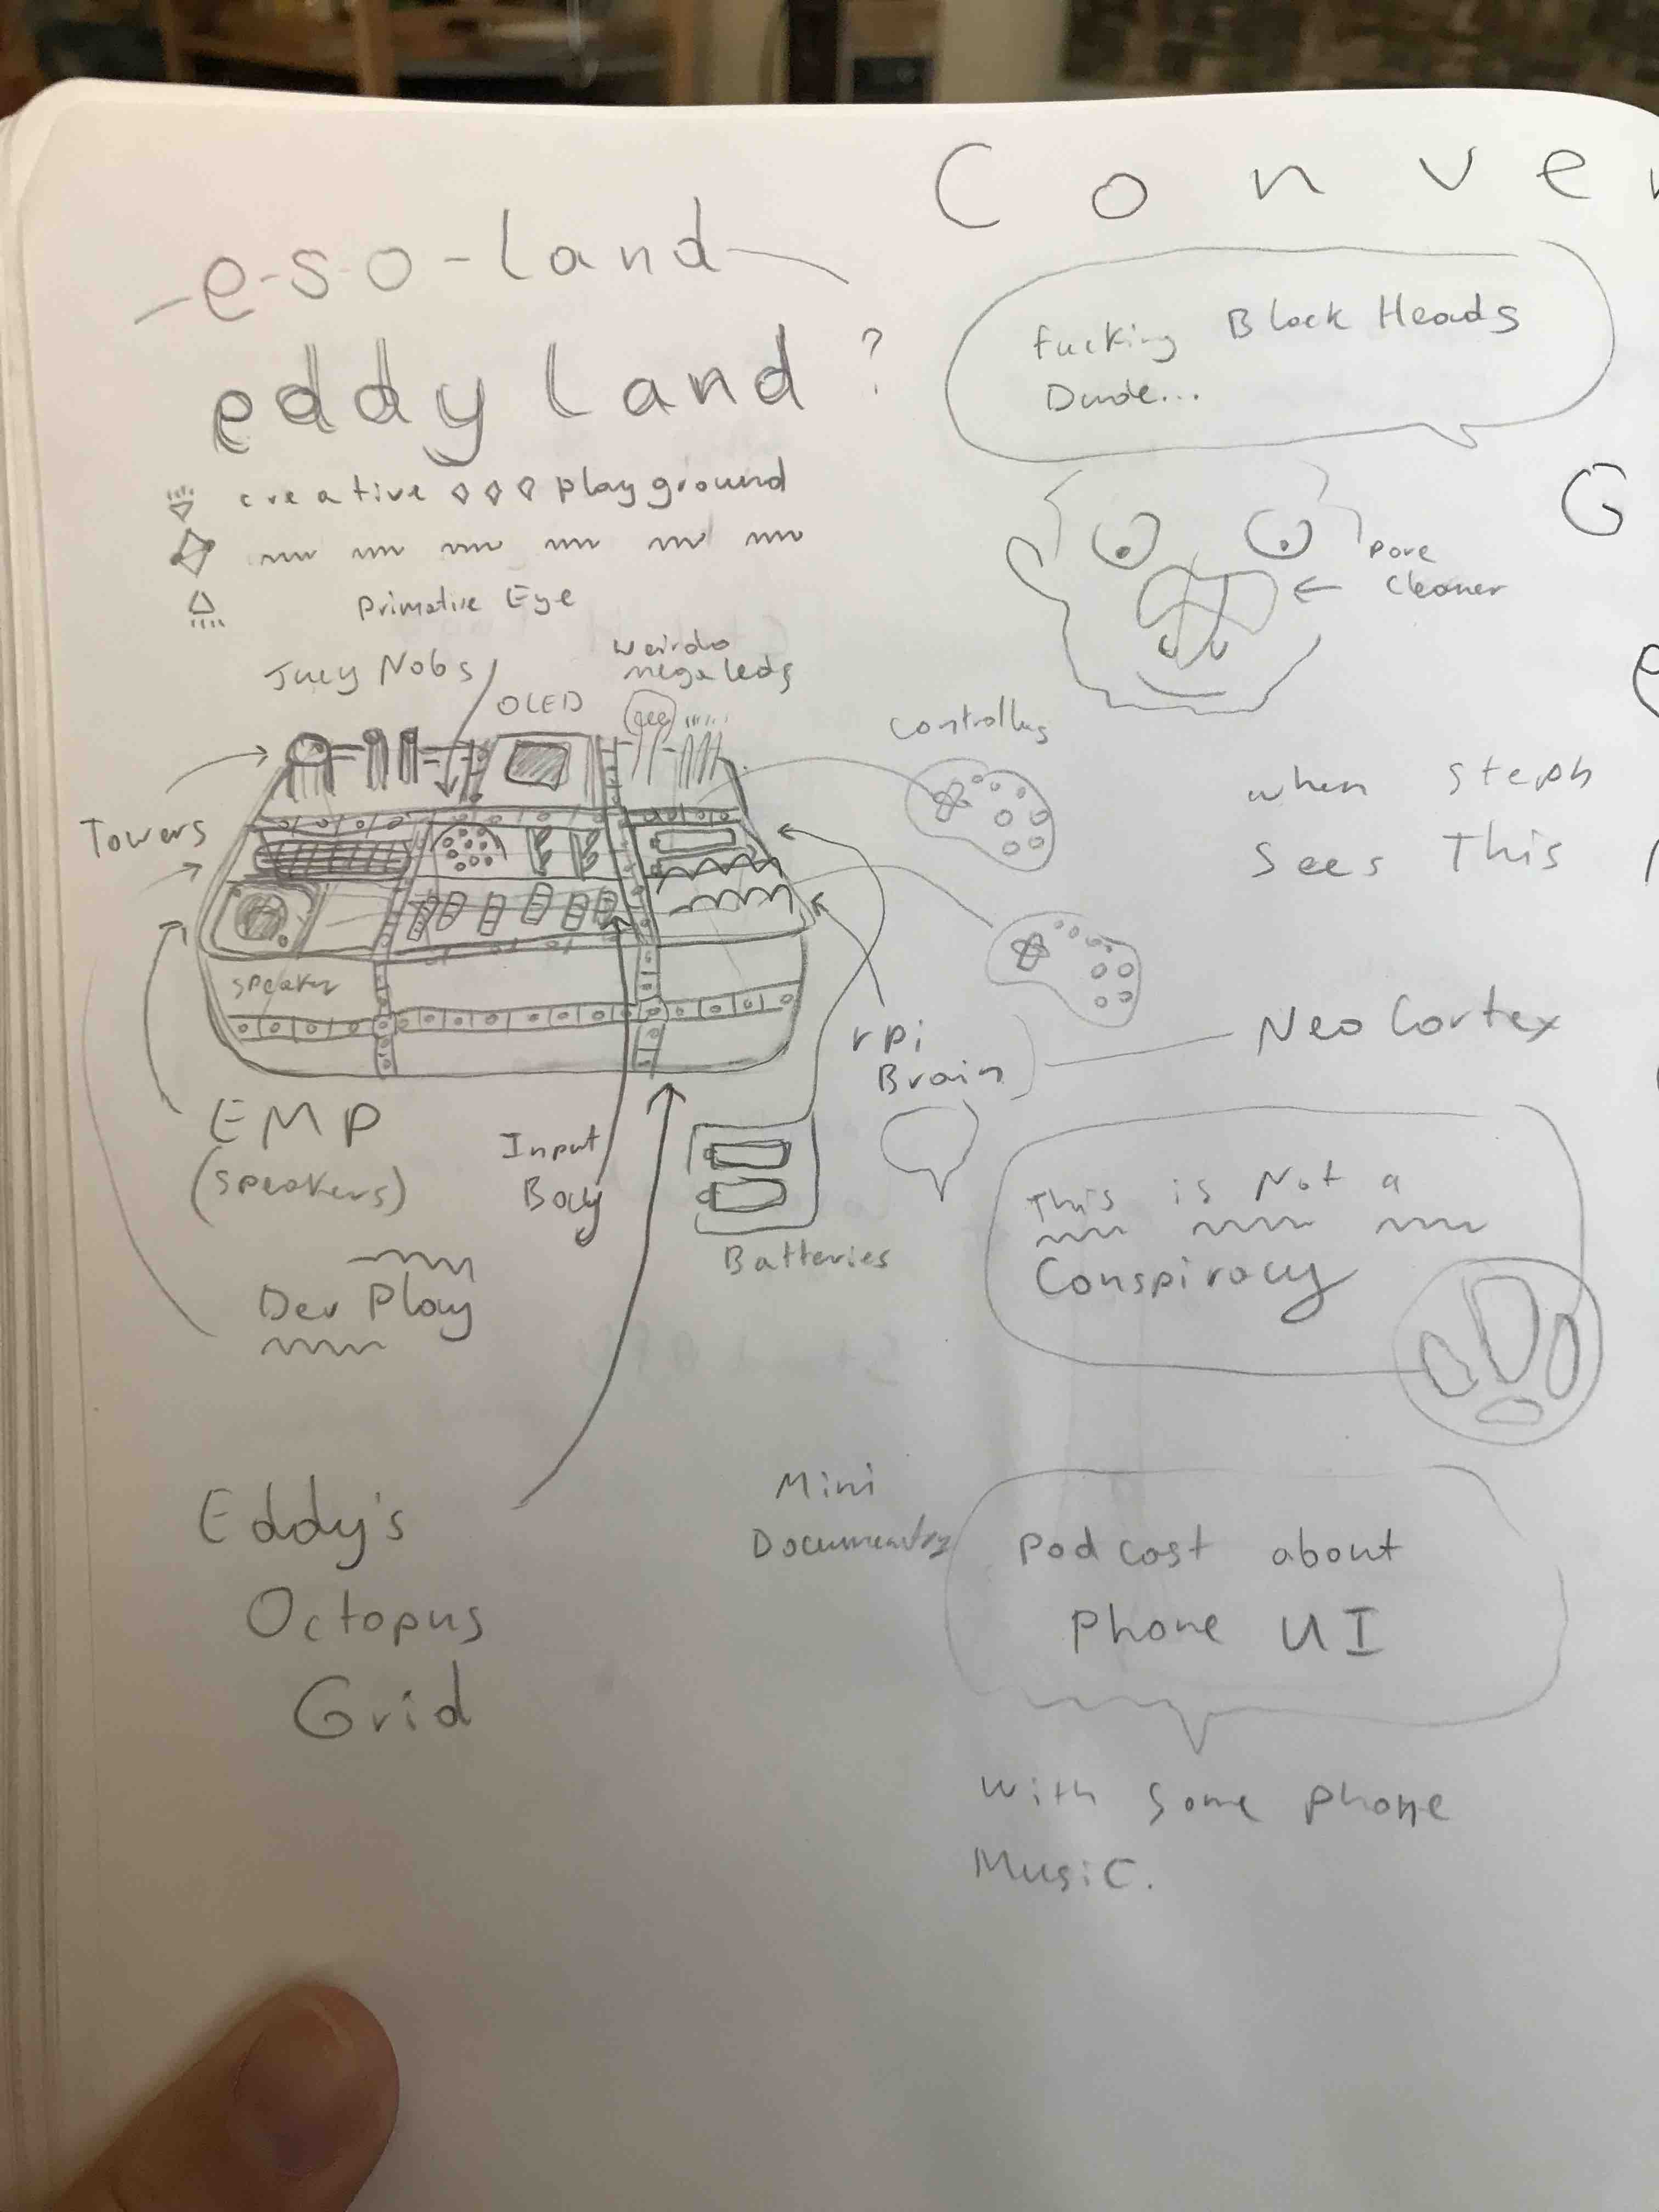 Conve
-e-s-o-land
eddy land ?
creative playground
Primative Eye
Juey Nobs
OLED
weirdo
mega leds
Towers
speaker
EMP
(speakers)
Input
Body
Batteries
rpi
Brain
Neo Cortex
Dev Play
Eddy's
Octopus
Grid
fucking Block Heads
Dude...
pore
cleaner
G
e
when Steph
Sees This
This is Not a
Conspiracy
Mini
Podcast about
Phone UI
with some phone
Music.